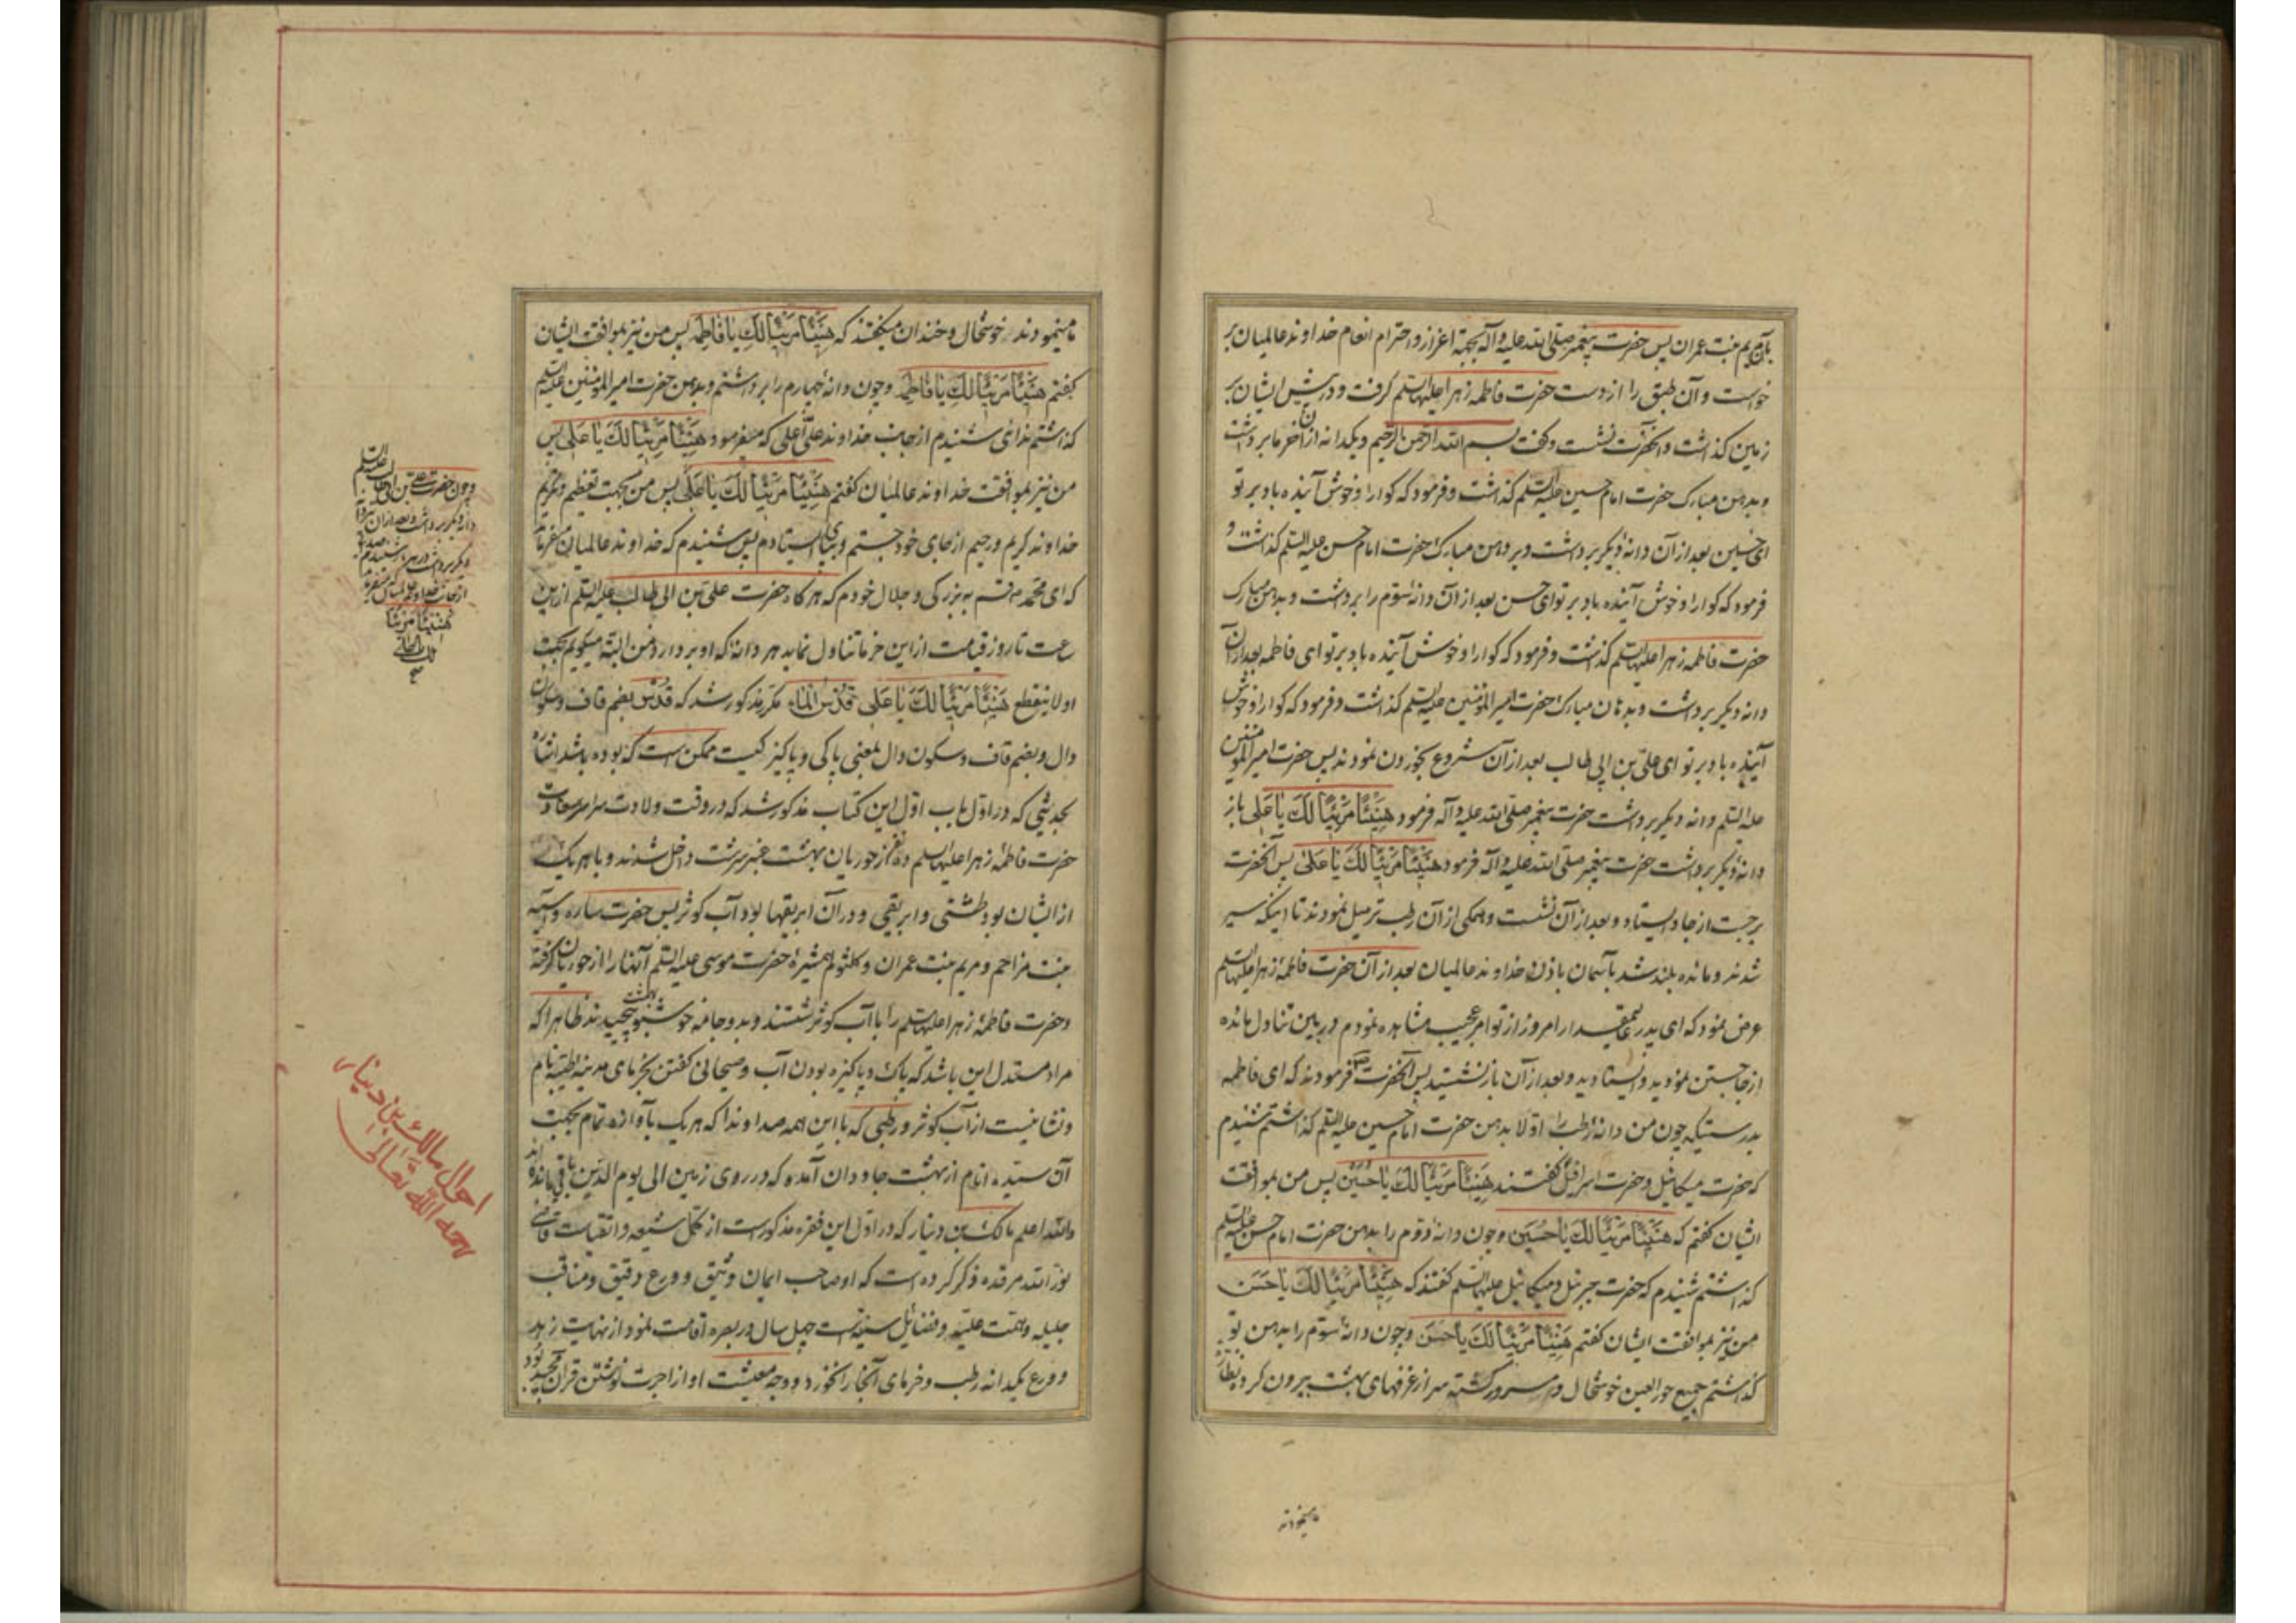 بآن مریم بنت عمران پس حضرت پیغمبر صلی الله علیه و آله بجهة اعزاز و احترام انعام خداوند عالمیان بر
خواست و آن طبق را از دست حضرت فاطمه زهرا علیها السلم گرفت و در پیش ایشان بر
زمین گذاشت و آنحضرت نشست و گفت بسم الله الرحمن الرحیم و یکدانه از آن خرما برداشت
و بدهن مبارک حضرت امام حسین علیه السلم گذاشت و فرمود که گوارا و خوش آینده باد بر تو
ای حسین بعد از آن دانهٔ دیگر برداشت و بر دهن مبارک حضرت امام حسن علیه السلم گذاشت و
فرمود که گوارا و خوش آینده باد بر تو ای حسن بعد از آن دانهٔ سوّم را برداشت و بدهن مبارک
حضرت فاطمه زهرا علیها السلم گذاشت و فرمود که گوارا و خوش آینده باد بر تو ای فاطمه بعد از آن
دانه دیگر برداشت و بدهان مبارک حضرت امیر المؤمنین علیه السلم گذاشت و فرمود که گوارا و خوش
آینده باد بر تو ای علی بن ابی طالب بعد از آن شروع بخوردن نمودند پس حضرت امیر المؤمنین
علیه السلم دانه دیگر برداشت حضرت پیغمبر صلی الله علیه و آله فرمود هَنِیئًا مَرِیئًا لَکَ یَا عَلی باز
دانهٔ دیگر برداشت حضرت پیغمبر صلی الله علیه و اله فرمود هَنِیئًا مَرِیئًا لَکَ یَا عَلی پس آنحضرت
برجست از جا و ایستاد و بعد از آن نشست و همگی از آن رطب تناول نمودند تا اینکه سیر
شدند و مائده بلند شد بآسمان باذن خداوند عالمیان بعد از آن حضرت فاطمهٔ زهرا علیها السلم
عرض نمود که ای پدر عالیمقدار امروز از تو امر عجیب مشاهده نمودم در بین تناول مائده
از جا جستن نمودید و ایستادید و بعد از آن باز نشستید پس آنحضرت فرمودند که ای فاطمه
بدرستیکه چون من دانهٔ رطب را اولا بدهن حضرت امام حسین علیه السلم گذاشتم شنیدم
که حضرت میکائیل و حضرت اسرافیل گفتند هَنِیئًا مَرِیئًا لَکَ یَا حُسَیْن پس من بموافقت
ایشان گفتم که هَنِیئًا مَرِیئًا لَکَ یَا حُسَیْن و چون دانهٔ دوّم را بدهن حضرت امام حسن علیه السلم
گذاشتم شنیدم که حضرت جبرئیل و میکائیل علیهما السلم گفتند که هَنِیئًا مَرِیئًا لَکَ یَا حَسَن
من نیز بموافقت ایشان گفتم هَنِیئًا مَرِیئًا لَکَ یَا حَسَن و چون دانهٔ سوّم را بدهن تو
گذاشتم جمیع حور العین خوشحال و مسرور گشته سر از غرفهای بهشت بیرون کرده
مینمودند
مینمودند خوشحال و خندان میگفتند که هَنِیئًا مَرِیئًا لَکِ یَا فَاطِمَه پس من نیز بموافقت ایشان
گفتم هَنِیئًا مَرِیئًا لَکِ یَا فَاطِمَه و چون دانهٔ چهارم را برداشتم و بدهن حضرت امیر المؤمنین علیه السلم
گذاشتم ندای شنیدم از جانب خداوند علیّ اعلی که میفرمود هَنِیئًا مَرِیئًا لَکَ یَا عَلی پس
من نیز بموافقت خداوند عالمیان گفتم هَنِیئًا مَرِیئًا لَکَ یَا عَلی پس من بجهت تعظیم و تکریم
خداوند کریم و رحیم از جای خود جستم و بپای ایستادم پس شنیدم که خداوند عالمیان میفرماید
که ای محمّد قسم به بزرگی و جلال خودم که هرگاه حضرت علی بن ابی طالب علیه السلم از این
ساعت تا روز قیامت از این خرما تناول نماید هر دانهٔ که او بردارد من البته میگویم بجهت
او لا ینقطع هَنِیئًا مَرِیئًا لَکَ یَا عَلی قُدْس المَاء مکرر مذکور شد که قُدس بضم قاف و سکون
دال و بضم قاف و سکون دال بمعنی پاکی و پاکیزگیست ممکن است که بوده باشد اشاره
بحدیثی که در اوّل باب اوّل این کتاب مذکور شد که در وقت ولادت سراسر سعادت
حضرت فاطمهٔ زهرا علیها السلم ده نفر از حوریان بهشت عنبر سرشت داخل شدند و با هر یک
از ایشان بود طشتی و ابریقی و در آن ابریقها بود آب کوثر پس حضرت ساره و آسیه
بنت مزاحم و مریم بنت عمران و کلثوم همشیرهٔ حضرت موسی علیه السلم آنها را از حوریان گرفته
و حضرت فاطمهٔ زهرا علیها السلم را با آب کوثر شستند و بدو جامه خوشبوی بهشت پیچیدند ظاهرا که
مراد مستدل این باشد که پاک و پاکیزه بودن آب و صیحانی گفتن بخرمای مدینه طیبه نام
و نشانیست از آب کوثر و رطبی که با این همه صدا و ندا که هر یک بآوازه تمام بجهت
آن سیّده انام از بهشت جاودان آمده که در روی زمین الی یوم الدّین باقی مانده اند
والله اعلم مالک بن دینار که در اوّل این فقره مذکور است از کمّل شیعه و اتقیاست قاضی
نوّر الله مرقده ذکر کرده است که او صاحب ایمان وثیق و ورع دقیق و مناقب
جلیله و همّت علیّه و فضائل سنیّه است چهل سال در بصره اقامت نمود از نهایت زهد
و ورع یکدانه رطب و خرمای آنجا را نخورد و وجه معیشت او از اجرت نوشتن قرآن مجید بود
و چون حضرت علی بن ابی طالب علیه السلم
دانه دیگر برداشت و بعد از آن نیز دانهٔ
دیگر برداشت در هر مرتبه شنیدم
از جانب خداوند عالمیان که میفرمود
هَنِیئًا مَرِیئًا
لک یا علی
احوال مالک بن دینار
رحمه الله تعالی